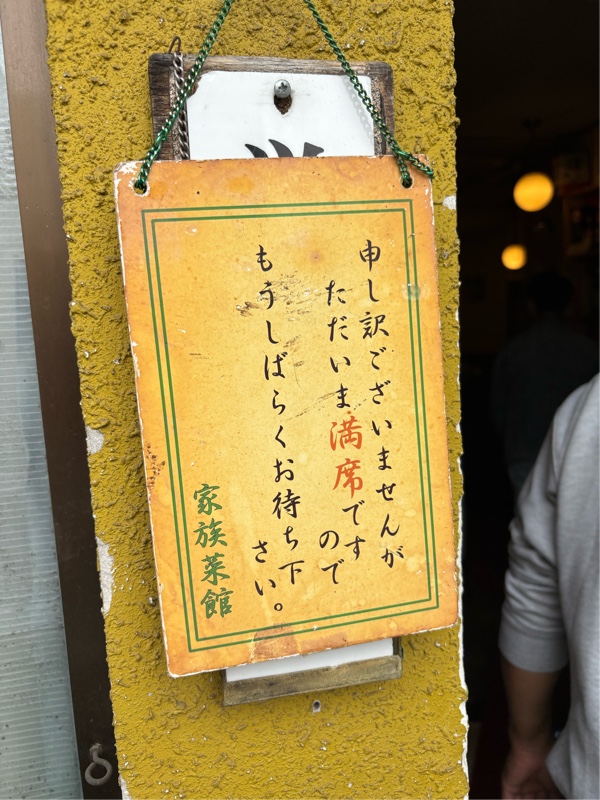 申し訳ございませんが
ただいま満席ですので
もうしばらくお待ち下さい。
家族菜館